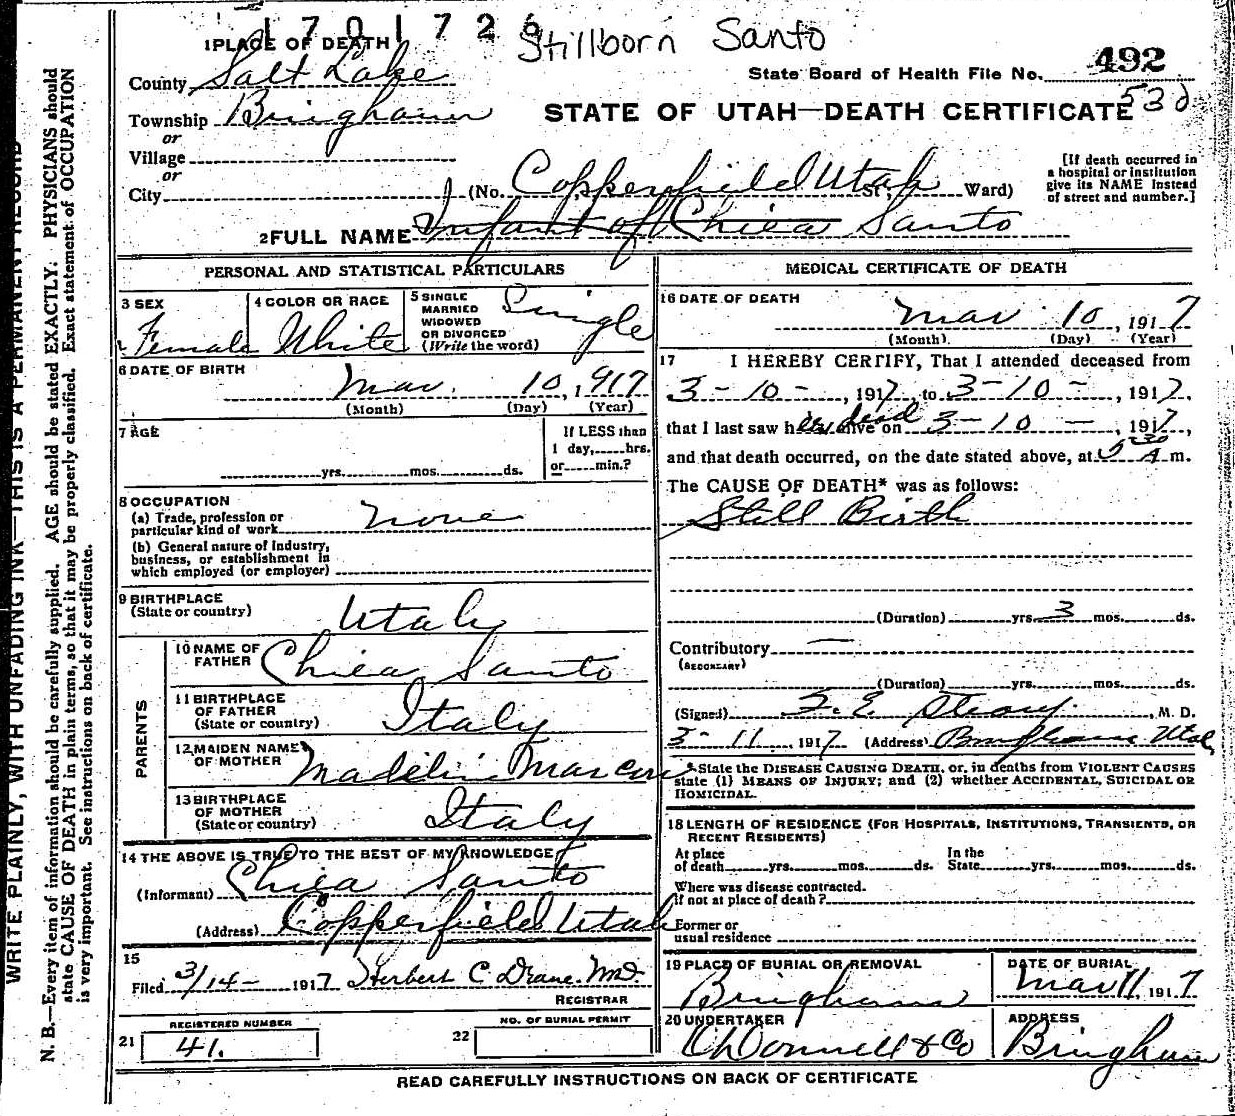 1701726 Stillborn Santo
1 PLACE OF DEATH
County Salt Lake
State Board of Health File No. 492
Township Bingham
STATE OF UTAH—DEATH CERTIFICATE 530
or
Village
or
City (No. Copperfield Utah St; Ward)
[If death occurred in a hospital or institution give its NAME instead of street and number.]
2 FULL NAME Infant of Chiea Santo
PERSONAL AND STATISTICAL PARTICULARS
3 SEX Female
4 COLOR OR RACE White
5 SINGLE MARRIED WIDOWED OR DIVORCED (Write the word) Single
6 DATE OF BIRTH
Mar. 10, 1917
(Month) (Day) (Year)
7 AGE
yrs. mos. ds.
If LESS than 1 day, hrs. or min.?
8 OCCUPATION
(a) Trade, profession or particular kind of work none
(b) General nature of industry, business, or establishment in which employed (or employer)
9 BIRTHPLACE
(State or country) Utah
PARENTS
10 NAME OF FATHER Chiea Santo
11 BIRTHPLACE OF FATHER (State or country) Italy
12 MAIDEN NAME OF MOTHER Madelin
13 BIRTHPLACE OF MOTHER (State or country) Italy
14 THE ABOVE IS TRUE TO THE BEST OF MY KNOWLEDGE
(Informant) Chiea Santo
(Address) Copperfield Utah
15
Filed 3/14- 1917 Herbert C Drane. M.D.
REGISTRAR
REGISTERED NUMBER
21 41.
NO. OF BURIAL PERMIT
22
MEDICAL CERTIFICATE OF DEATH
16 DATE OF DEATH
Mar 10, 1917
(Month) (Day) (Year)
17 I HEREBY CERTIFY, That I attended deceased from
3-10-, 1917, to 3-10-, 1917,
that I last saw her dead alive on 3-10-, 1917,
and that death occurred, on the date stated above, at 5 30 A m.
The CAUSE OF DEATH* was as follows:
Still Birth
(Duration) yrs. 3 mos. ds.
Contributory —
(SECONDARY)
(Duration) yrs. mos. ds.
(Signed) F. E. Straup, M. D.
3-11, 1917 (Address) Bingham Utah
*State the DISEASE CAUSING DEATH, or, in deaths from VIOLENT CAUSES
state (1) MEANS OF INJURY; and (2) whether ACCIDENTAL, SUICIDAL OR
HOMICIDAL.
18 LENGTH OF RESIDENCE (FOR HOSPITALS, INSTITUTIONS, TRANSIENTS, OR
RECENT RESIDENTS)
At place of death yrs. mos. ds. In the State yrs. mos. ds.
Where was disease contracted.
if not at place of death?
Former or
usual residence
19 PLACE OF BURIAL OR REMOVAL
Bingham
DATE OF BURIAL
Mar 11, 1917
20 UNDERTAKER
O'Donnell & Co
ADDRESS
Bingham
READ CAREFULLY INSTRUCTIONS ON BACK OF CERTIFICATE
WRITE PLAINLY, WITH UNFADING INK—THIS IS A PERMANENT RECORD
N. B.—Every item of information should be carefully supplied. AGE should be stated EXACTLY. PHYSICIANS should
state CAUSE OF DEATH in plain terms, so that it may be properly classified. Exact statement of OCCUPATION
is very important. See instructions on back of certificate.